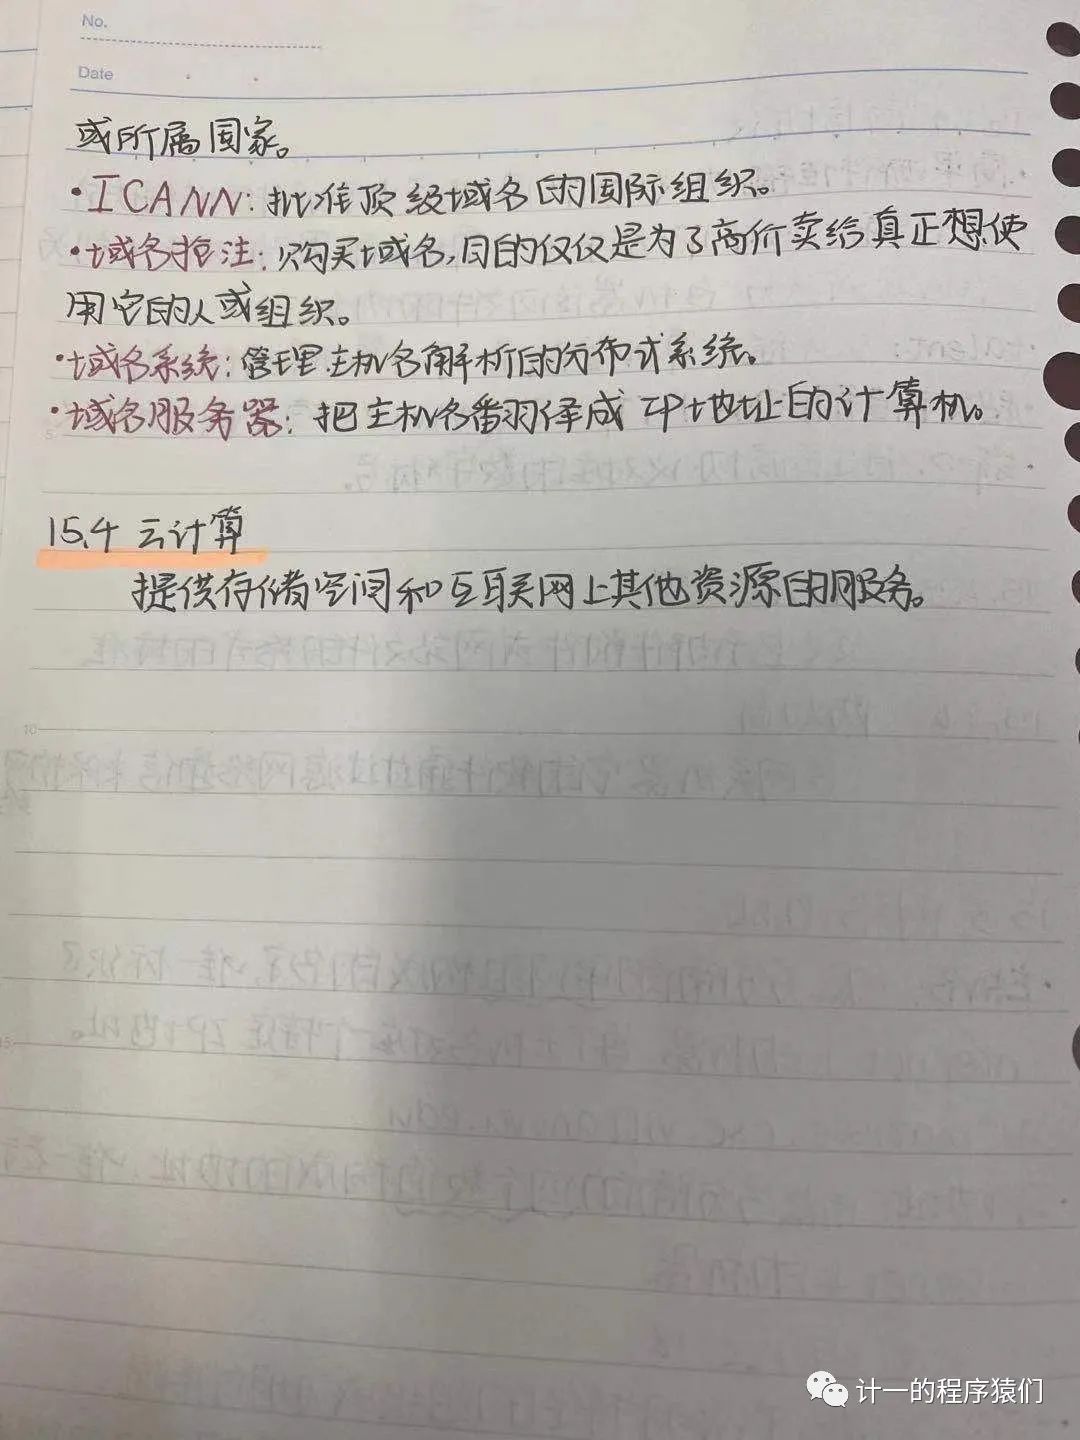 No.
Date
或所属国家。
·ICANN:批准顶级域名的国际组织。
·域名抢注:购买域名,目的仅仅是为了高价卖给真正想使
用它的人或组织。
·域名系统:管理主机名解析的分布式系统。
·域名服务器:把主机名翻译成IP地址的计算机。
15.4 云计算
提供存储空间和互联网上其他资源的服务。
计一的程序猿们